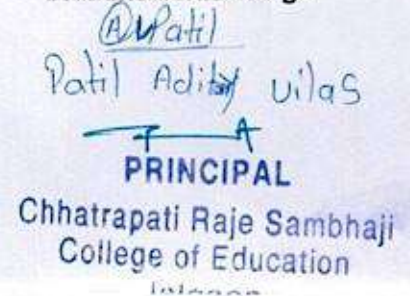 AVPatil
Patil Aditay vilas
PRINCIPAL
Chhatrapati Raje Sambhaji
College of Education